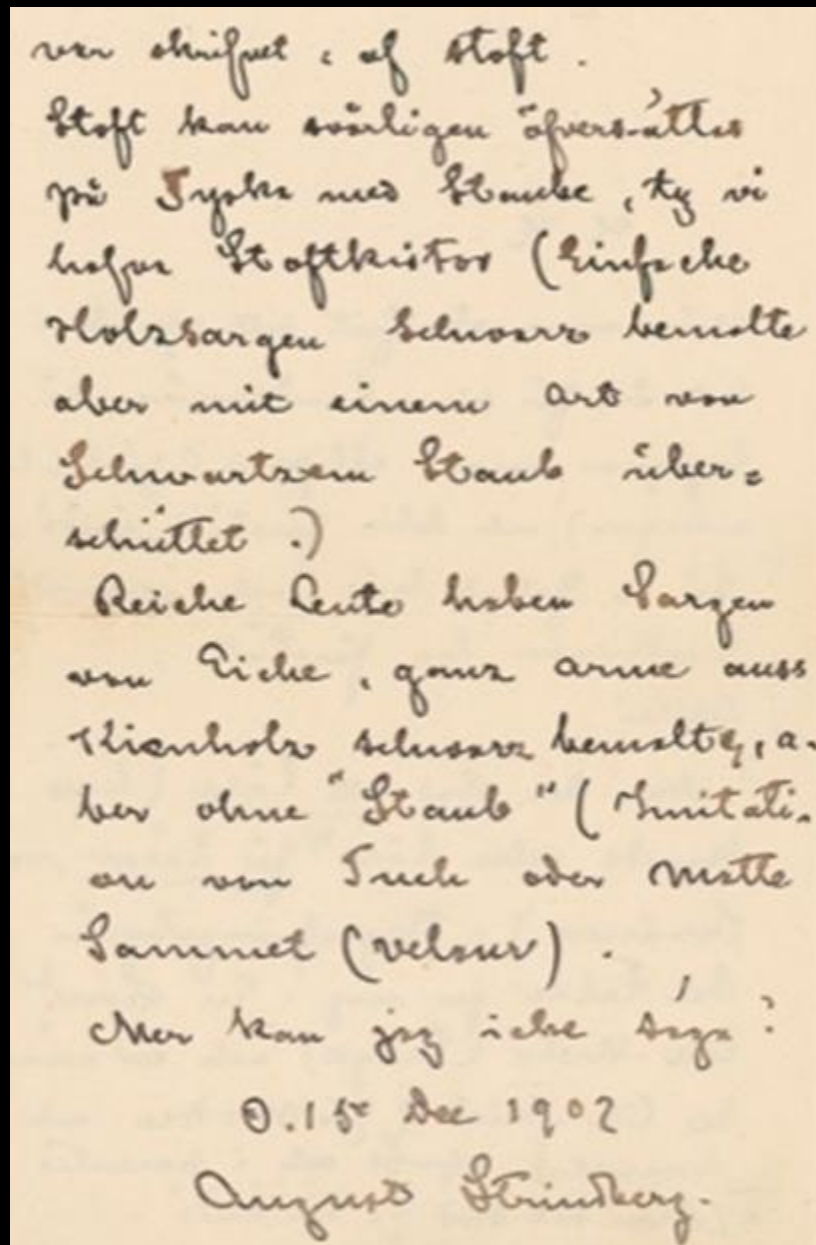 var skrifvet, af stoft.
Stoft kan svårligen öfversättas
på Tyska med Staube, ty vi
hafva Stoftkistor (Einfache
Holzsargen Schwarz bemalte
aber mit einem Art von
Schwartzem Staub über=
schüttet.)
Reiche Leute haben Sargen
von Eiche, ganz arme auss
Kienholz schwarz bemalte, a-
ber ohne "Staub" (Imitati-
on von Tuch oder Matte
Sammet (velour).
Mer kan jag icke säga!
D. 15e Dec 1902
August Strindberg.